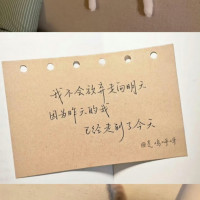 我不会放弃走向明天
因为昨天的我
已经走到了今天